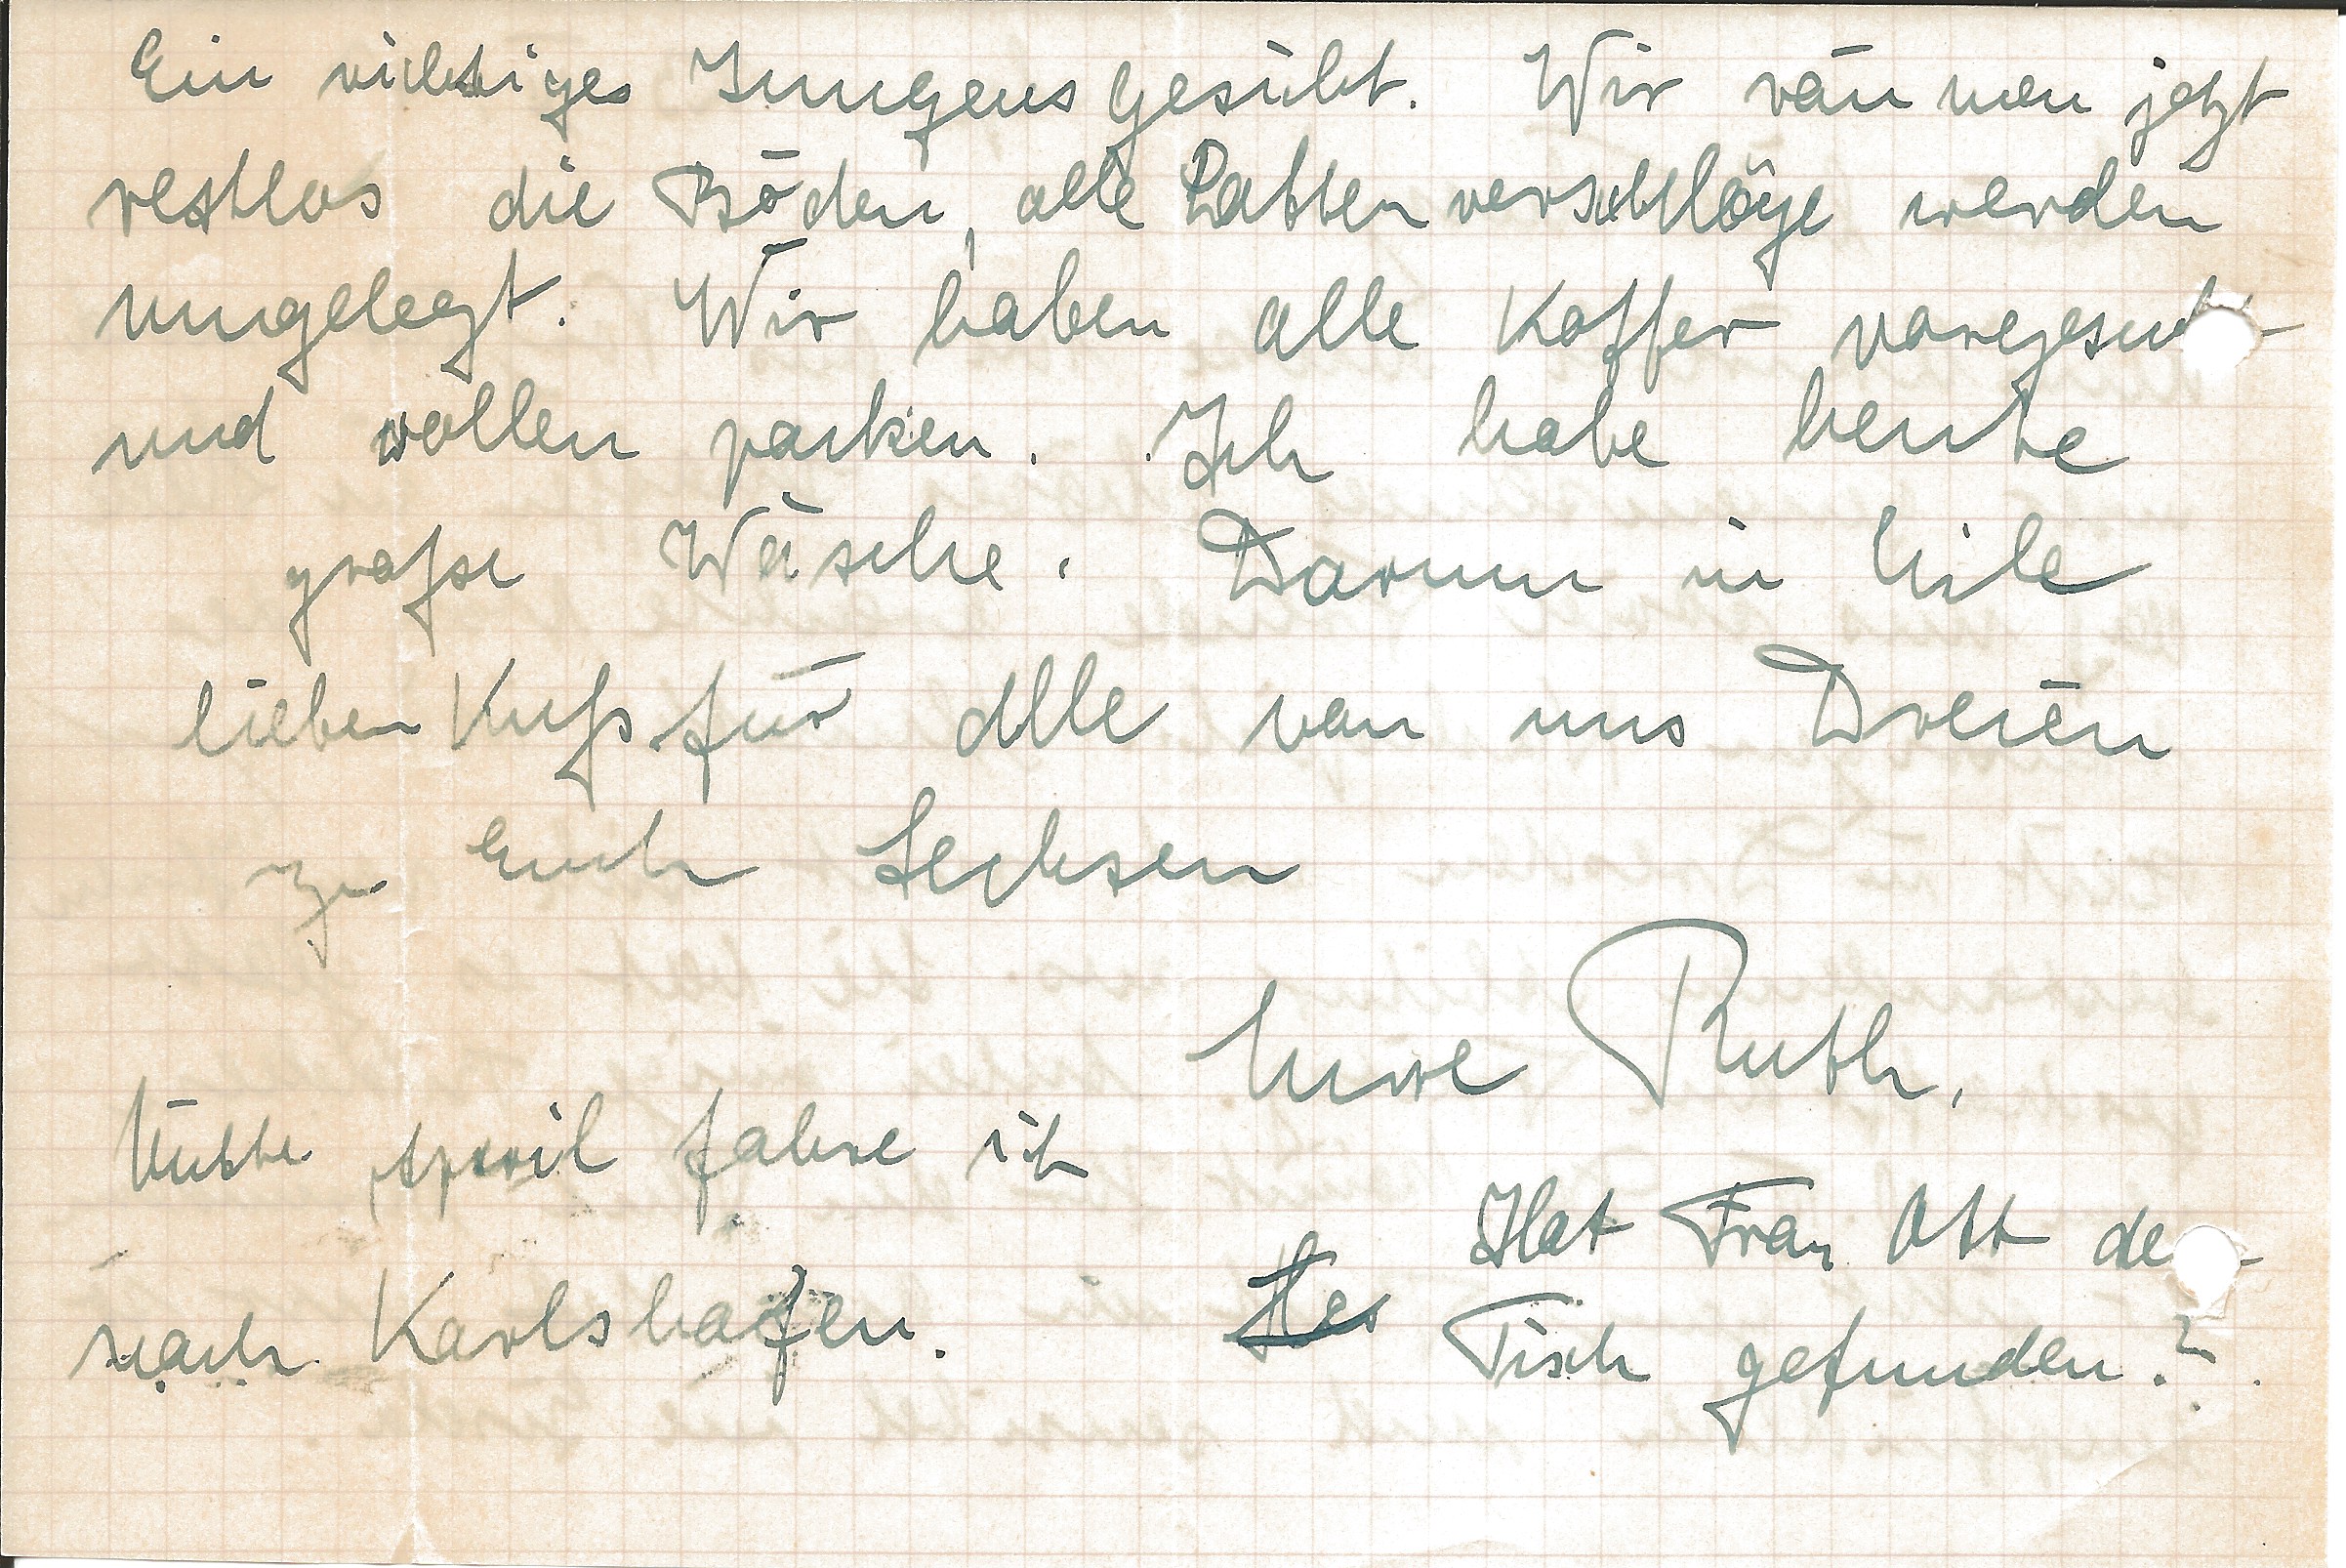 Ein richtiges Jungensgesicht. Wir räumen jetzt
restlos die Böden, alle Lattenverschläge werden
umgelegt. Wir haben alle Koffer vorgesucht
und wollen packen. Ich habe heute
große Wäsche. Darum in Eile
lieben Kuß für Alle von uns Dreien
zu Euch Sechsen
Eure Ruth.
Mitte April fahre ich
nach Karlshafen.
Hat Frau Ott den
Tisch gefunden?